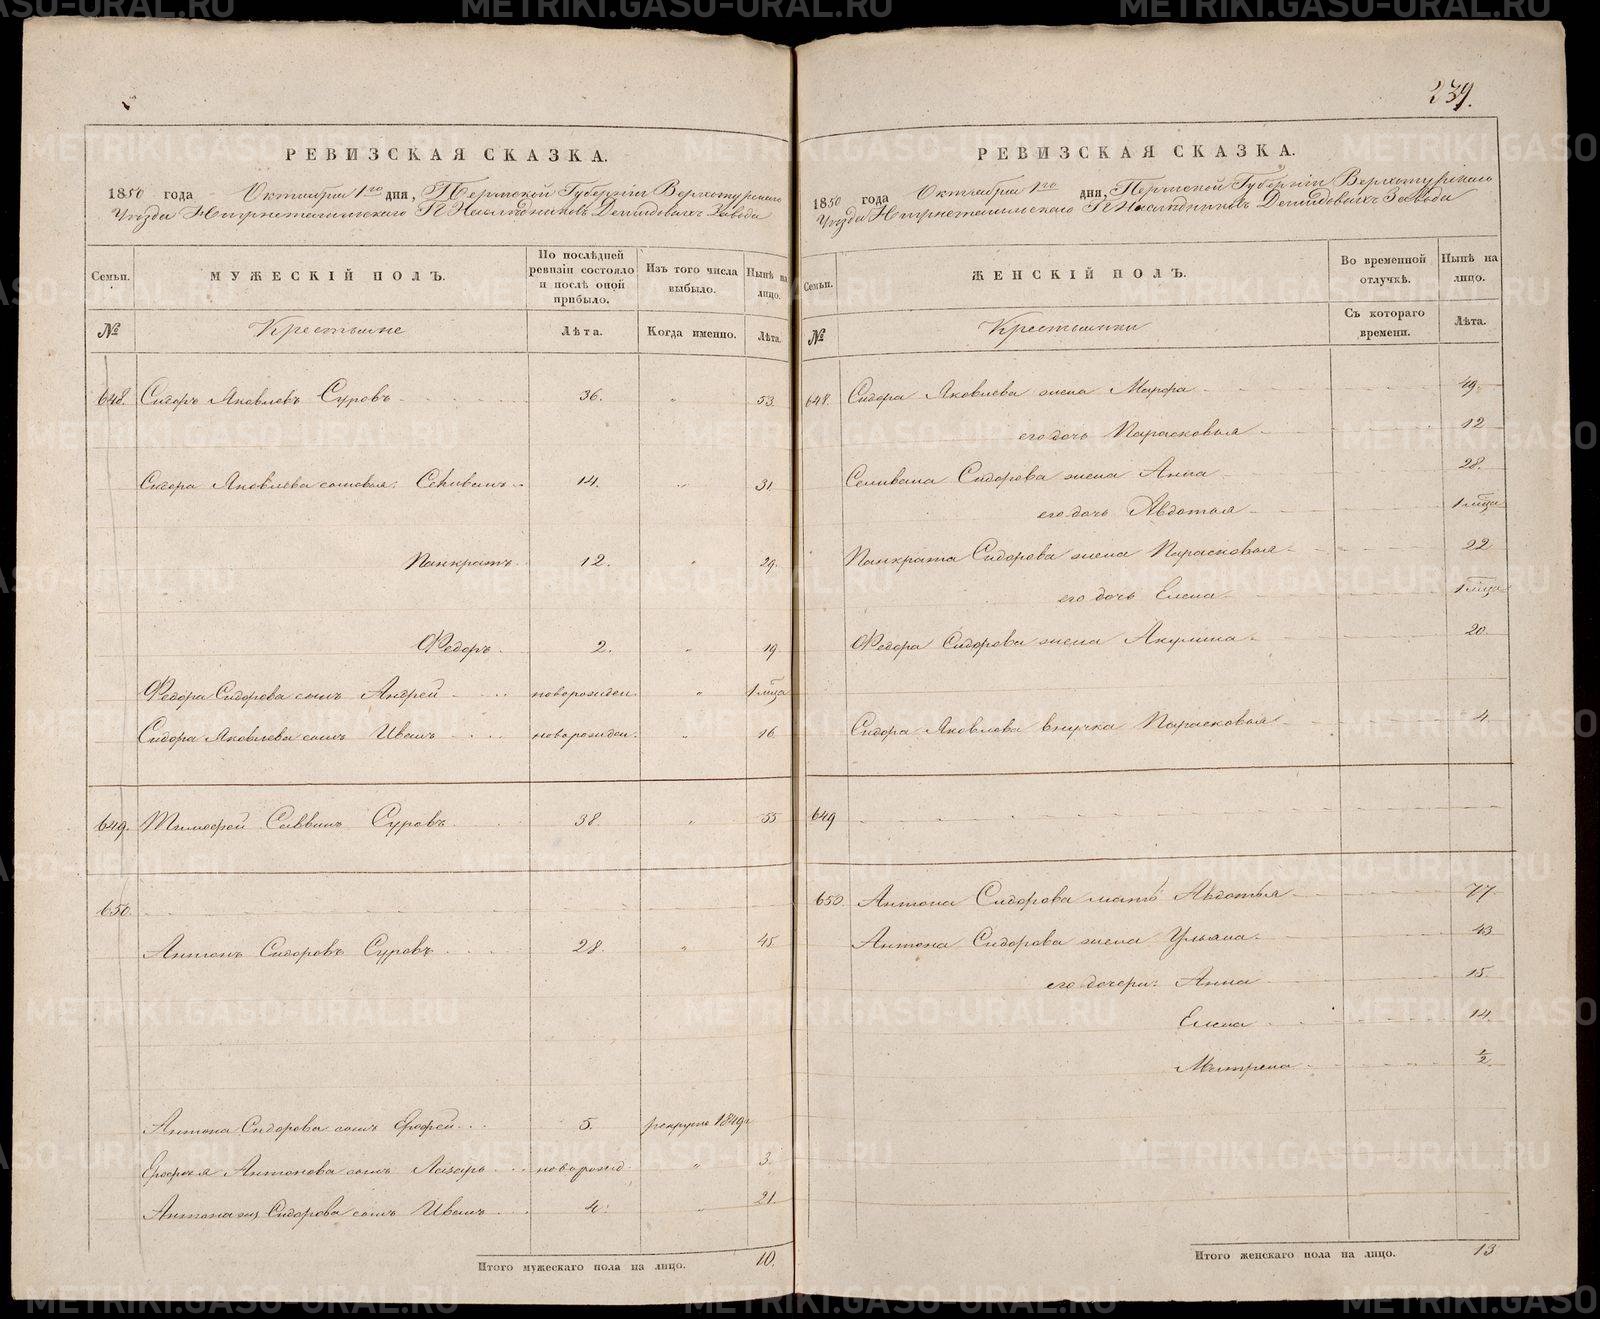 239.
РЕВИЗСКАЯ СКАЗКА.
1850 года Октября 1го дня, Пермской Губерніи Верхотурскаго
Уѣзда Нижнетагильскаго Гг. Наслѣдниковъ Демидовыхъ Завода
Семьи. МУЖЕСКІЙ ПОЛЪ. По послѣдней ревизіи состояло и послѣ оной прибыло. Изъ того числа выбыло. Нынѣ на лицо.
№ Крестьяне Лѣта. Когда именно. Лѣта.
648. Сидоръ Яковлевъ Суровъ 36. " 53.
Сидора Яковлева сыновья: Селиванъ 14. " 31.
Панкратъ 12. " 29.
Федоръ 2. " 19
Федора Сидорова сынъ Андрей новорожден. " 1 мѣсца
Сидора Яковлева сынъ Иванъ новорожден. " 16
649. Тимофей Саввинъ Суровъ 38. " 55
650.
Антонъ Сидоровъ Суровъ 28. " 45
Антона Сидорова сынъ Ерофей 5. рекрутъ 1849г.
Ерофея Антонова сынъ Лазарь новорожд. " 3.
Антона Сидорова сынъ Иванъ 4. " 21.
Итого мужескаго пола на лицо. 10.
РЕВИЗСКАЯ СКАЗКА.
1850 года Октября 1го дня, Пермской Губерніи Верхотурскаго
Уѣзда Нижнетагильскаго Гг. Наслѣдниковъ Демидовыхъ Завода
Семьи. ЖЕНСКІЙ ПОЛЪ. Во временной отлучкѣ. Нынѣ на лицо.
№ Крестьянки Съ котораго времени. Лѣта.
648. Сидора Яковлева жена Марфа 49.
его дочь Парасковья 12
Селивана Сидорова жена Анна 28.
его дочь Авдотья 1 мѣсца
Панкрата Сидорова жена Парасковья 22
его дочь Елена 1 мѣсца
Федора Сидорова жена Акулина 20.
Сидора Яковлева внучка Парасковья 4
649
650. Антона Сидорова мать Авдотья 77
Антона Сидорова жена Ульяна 43
его дочери: Анна 15.
Елена 14.
Матрена ½
Итого женскаго пола на лицо. 13
METRIKI.GASO-URAL.RU